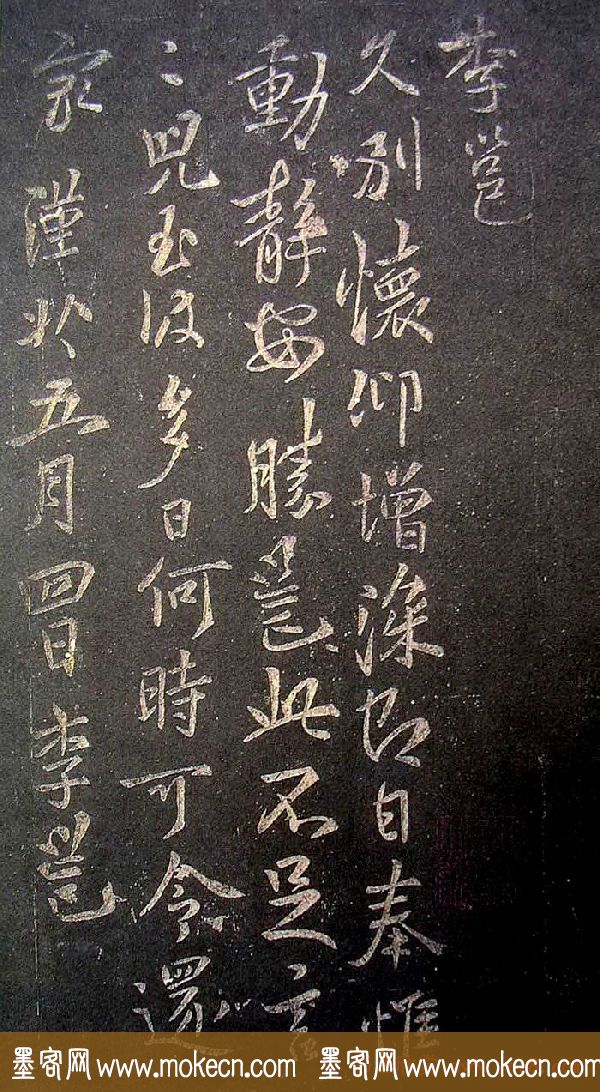 李邕
久別懷仰增深即日奉惟
動靜安勝邕此不足言
〻兒至彼多日何時可令還
家謹狀五月四日李邕
墨客网 www.mokecn.com 墨客网 www.mokecn.com